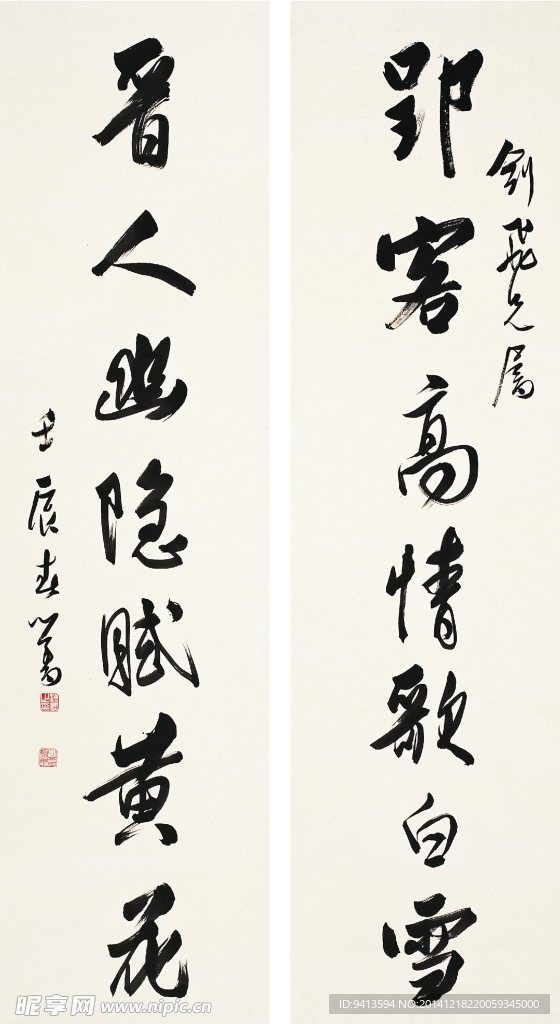 劍飛兄屬
郢客高情歌白雪
晋人幽隐賦黄花
壬辰春心畬
昵享网 www.nipic.cn
ID:9413594 NO:20141218220059345000